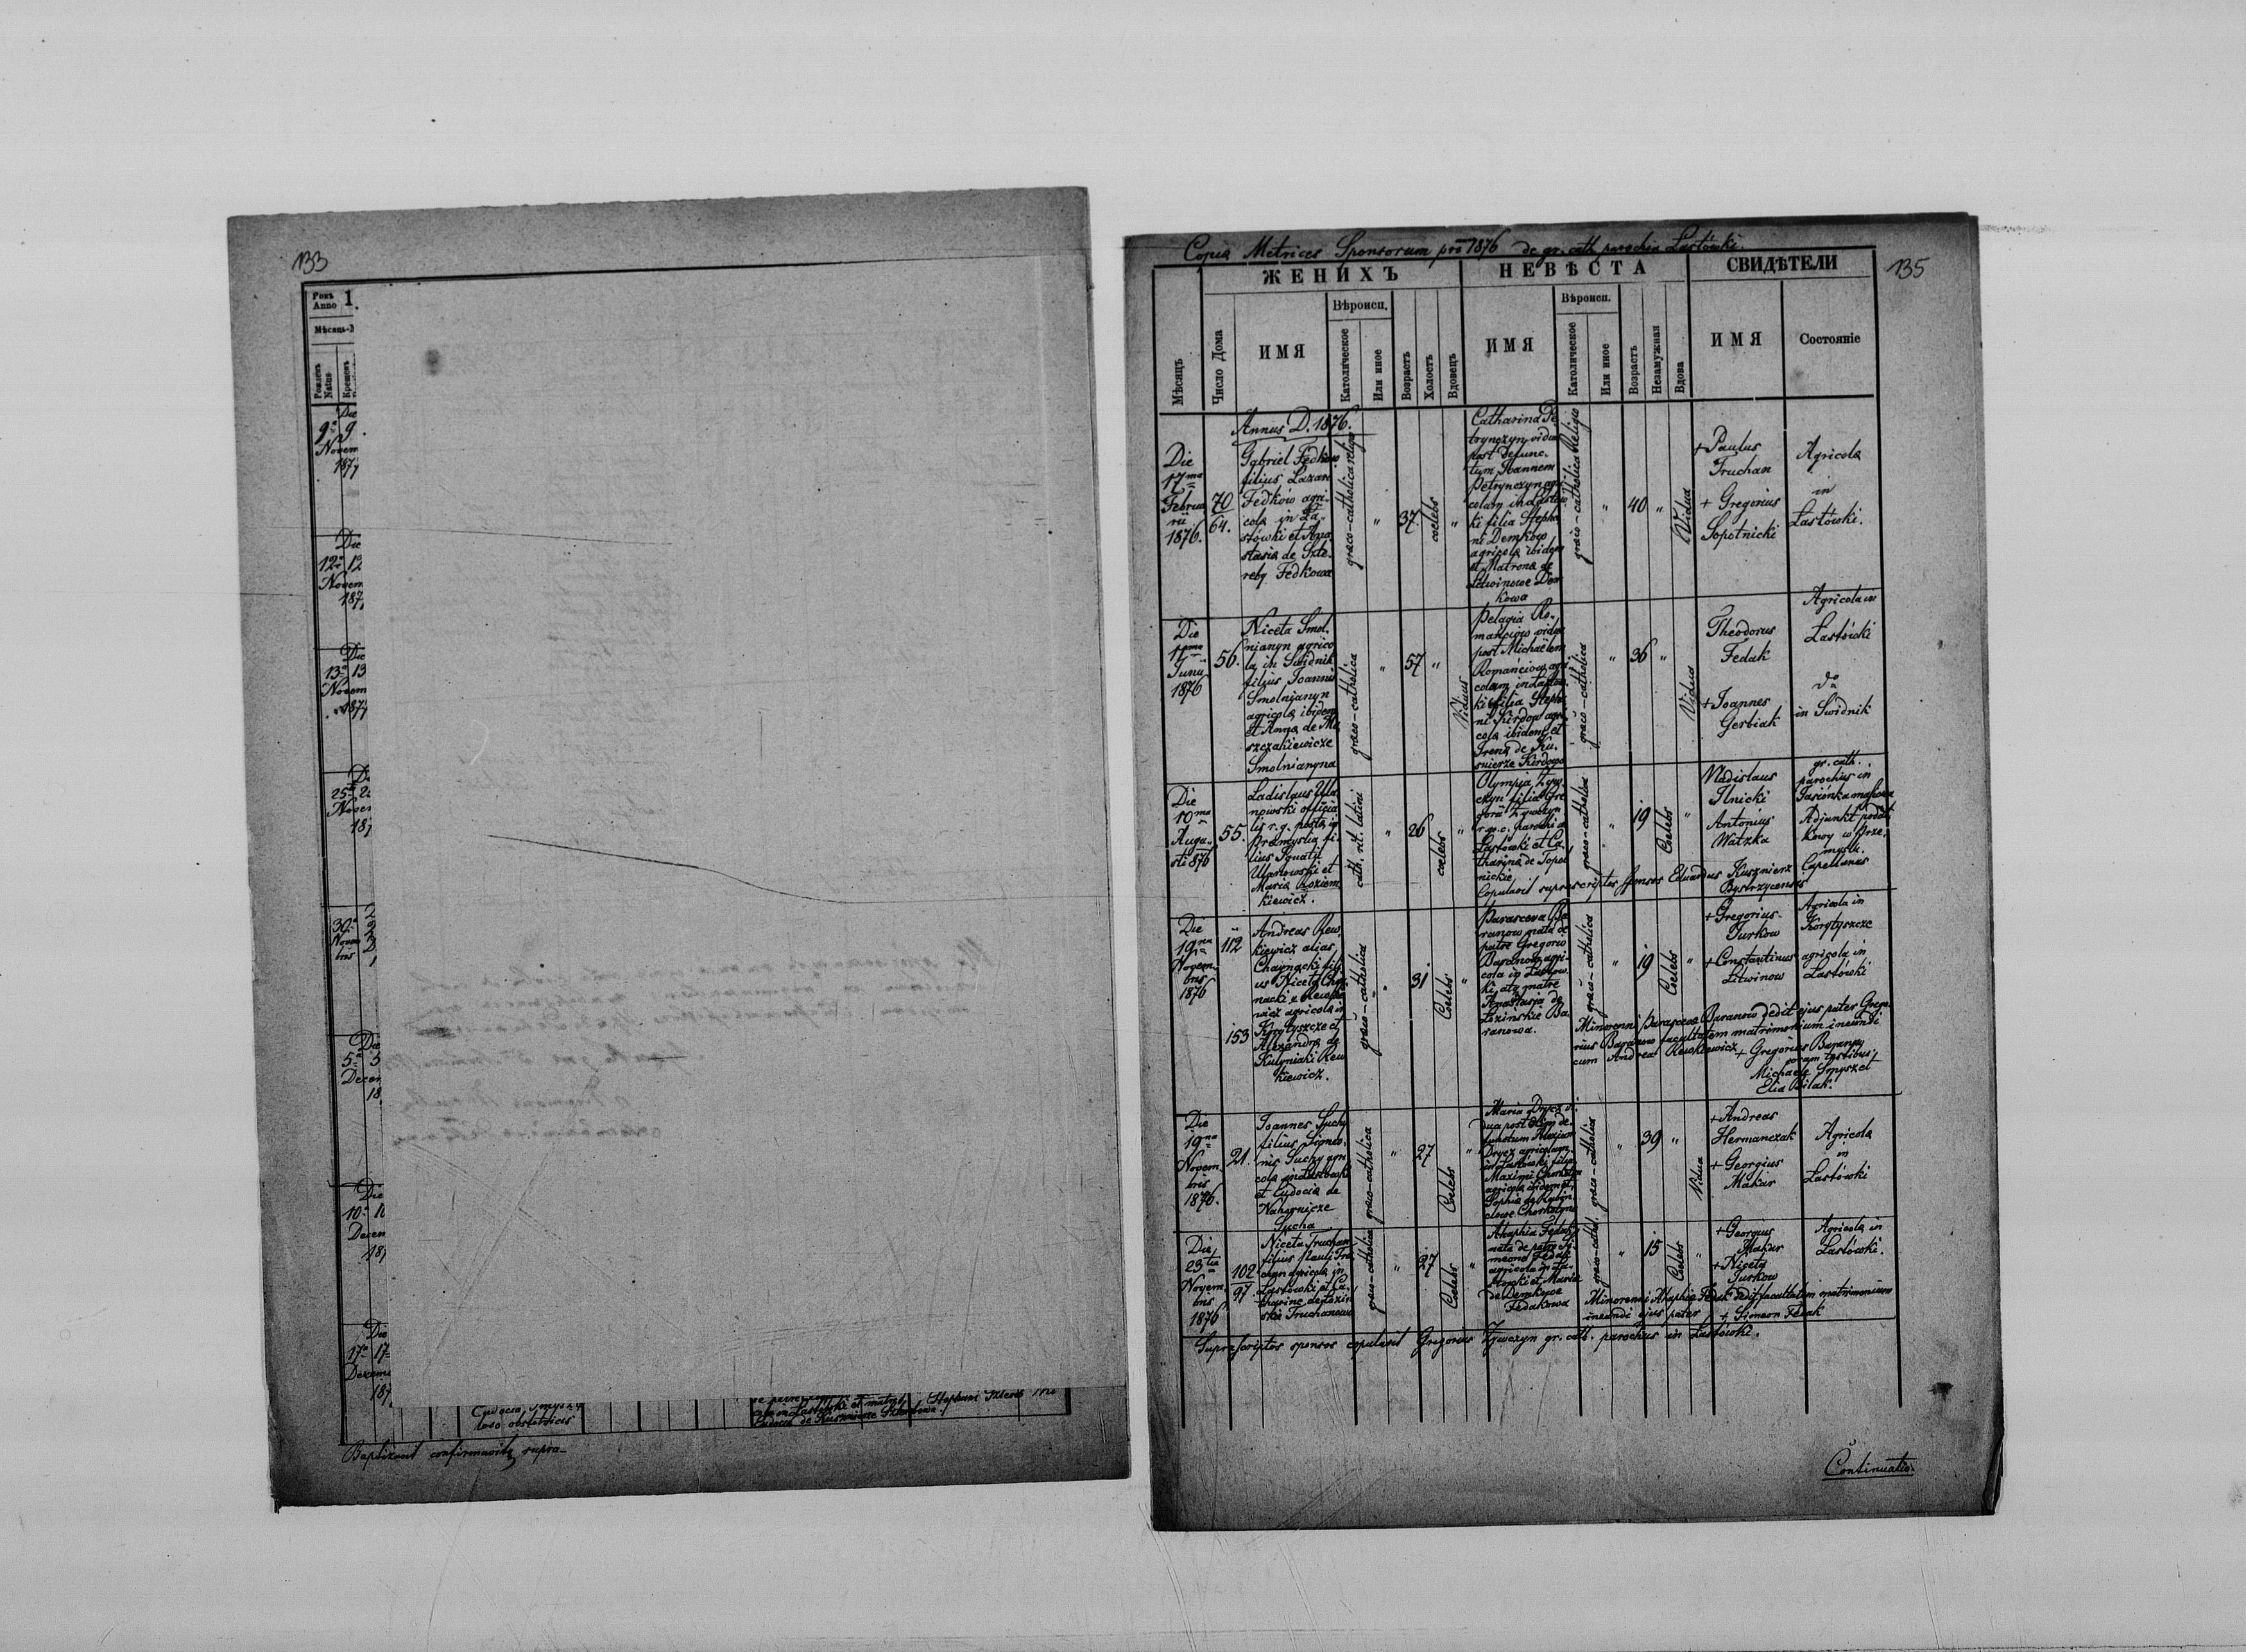 133
Рокъ
Anno 1
Мѣсяцъ
Рожденъ
Natus
Крещенъ
Die
9ª 9
Novem
187
Die
12ª 12
Novem
187
Die
13ª 13
Novem
1877
25 2
Novem
187
30ª
Novem
bris
Die
5ª 5
Decem
18
Die
10ª 10
Decem
187
Die
17ª 17
Decem
187
Eudocia Smysz
loco obstetricis
Baptizavit confirmavitq supra-
Copia Metrices Sponsorum pro 1876 de gr. cath. parochia Łastówki.
135
ЖЕНИХЪ
НЕВѢСТА
СВИДѢТЕЛИ
Мѣсяцъ
Число Дома
ИМЯ
Вѣроисп.
Католическое
Или иное
Возрастъ
Холостъ
Вдовецъ
ИМЯ
Вѣроисп.
Католическое
Или иное
Возрастъ
Незамужная
Вдова
ИМЯ
Состояніе
Annus D. 1876.
Die
17ma
Februa
rii
1876.
70
64.
Gabriel Fedkow
filius Lazari
Fedków agri-
cola in Ła-
stówki et Ana
stasia de Szte-
reby Fedkowa
graeco-catholica religio
"
37
coelebs
"
Catharina Pe
trynczyn vidua
post defunc-
tum Joannem
Petrynczyn agri
colam in Łastow
ki filia Stepha
ni Demkow
agricola ibidem
et Matrona de
Litwinowe Dem
kowa
graeco-catholica Religio
"
40
"
Vidua
+ Paulus
Truchan
+ Gregorius
Sopotnicki
Agricola
in
Łastówki.
Die
Junii
1876
56.
Niceta Smol-
nianyn agrico
la in Swidnik
filius Joannis
Smolnianyn
agricola ibidem
et Anna de Ma
szczakiewicze
Smolnianyna
graeco-catholica
"
57
"
Viduus
Pelagia Ro-
mańciow vidua
post Michaelem
Romańciow agri
colam in Łastow
ki filia Stepha
ni Kirdow agri
cola ibidem et
Irena de Ku-
snierze Kirdowa
graeco-catholica
"
36
"
Vidua
Theodorus
Fedak
+ Joannes
Gerbiak
Agricola in
Łastówki
do
in Swidnik
Die
10ma
Augu-
sti 1876
55.
Ladislaus Ula
nowski officia
lis r. g. posta in
Przemyslia fi-
lius Ignatii
Ulanowski et
Maria Koziem
kiewicz.
cath. rit. latini
"
26
coelebs
"
Olympia Zyw
czyn filia Gre
gorii Zywczyn
r. gr. c. parochi in
Łastówki et Ca
tharina de Topol
nickie
graeco-catholica
"
19
Coelebs
"
Vladislaus
Ilnicki
Antonius
Watzka
gr. cath.
parochus in
Jasionka masiowa
Adjunkt podat
kowy w Prze-
myslu.
Copulavit suprascriptos sponsos Eduardus Kusznierz Capellanus
Bystrzycensis
Die
19na
Novem-
bris
1876
112
153
Andreas Rew-
kiewicz alias
Charnacki fili-
us Niceta Char
nacki v. Rewkie
wicz agricola in
Korytyszcze et
Alexandra de
Kulyniaki Rew
kiewicz.
graeco-catholica
"
31
Celebs
"
Parasceva Ba
ranow nata de
patre Gregorio
Baranow agri-
cola in Łastow
ki atq matre
Anastasia de
Łozinskie Ba
ranowa.
graeco-catholica
"
19
Celebs
"
+ Gregorius
Turkow
+ Constantinus
Litwinow
Agricola in
Korytyszcze
agricola in
Łastówki
Minorenni Parasceva Baranow dedit ejus pater Grego
rius Baranow facultatem matrimonium ineundi
cum Andrea Rewkiewicz + Gregorius Baranow
coram testibus
Michaele Smysz et
Elia Bilak.
Die
19na
Novem-
bris
1876.
21.
Joannes Suchy
filius Simeo-
nis Suchy agri
cola in Łastówki
et Eudocia de
Nahornicze
Sucha
graeco-catholica
"
27
Celebs
"
Maria Drycz vi-
dua post olim de-
functum Alexium
Drycz agricolam
in Łastówki filia
Maximi Chorkotyn
agricola ibidem et
Sophia de Rubin
clowe Chorkotyna
graeco-catholica
"
39
"
Vidua
+ Andreas
Hermanczak
+ Georgius
Makar
Agricola
in
Łastówki
Die
23tia
Novem-
bris
1876
102
97
Niceta Truchan
filius Pauli Tru
chan agricola in
Łastówki et Ca-
tharina de Łozin
skie Truchanowa
graeco-catholica
"
27
Celebs
"
Ahaphia Fedak
nata de patre Si-
meone Fedak
agricola in Ła-
stowki et Maria
de Demkowe
Fedakowa
graeco-cathol.
"
15
Celebs
"
+ Georgius
Makar
+ Niceta
Turkow
Agricola in
Łastówki.
Minorenni Ahaphia Fedak dedit facultatem matrimonium
ineundi ejus pater + Simeon Fedak
Suprascriptos sponsos copulavit Gregorius Zywczyn gr. cath. parochus in Łastówki.
Continuatio